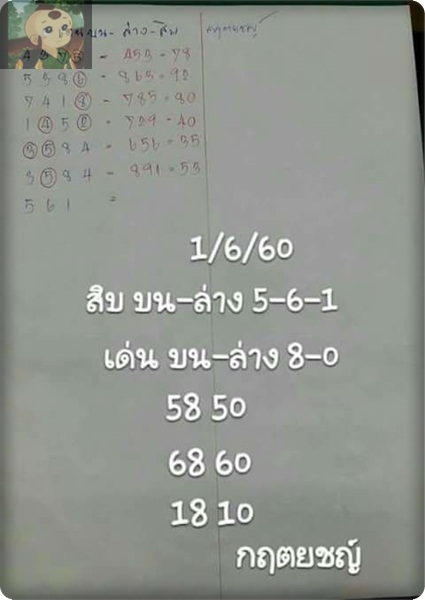 บน - ล่าง - สิบ กฤตยชญ์
= 453 = 78
5 3 8 6 = 865 = 92
7 4 1 8 = 785 = 80
1 4 5 8 = 729 = 40
3 5 8 4 = 656 = 35
3 5 8 4 = 891 = 53
5 6 1 =
1/6/60
สิบ บน-ล่าง 5-6-1
เด่น บน-ล่าง 8-0
58 50
68 60
18 10
กฤตยชญ์